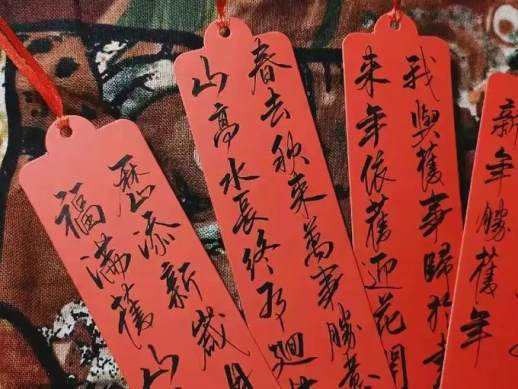 历添新歲月
福滿舊山
春去秋來萬事勝意
山高水長終有迴
我與舊事歸於
來年依舊迎花開
新年勝舊年